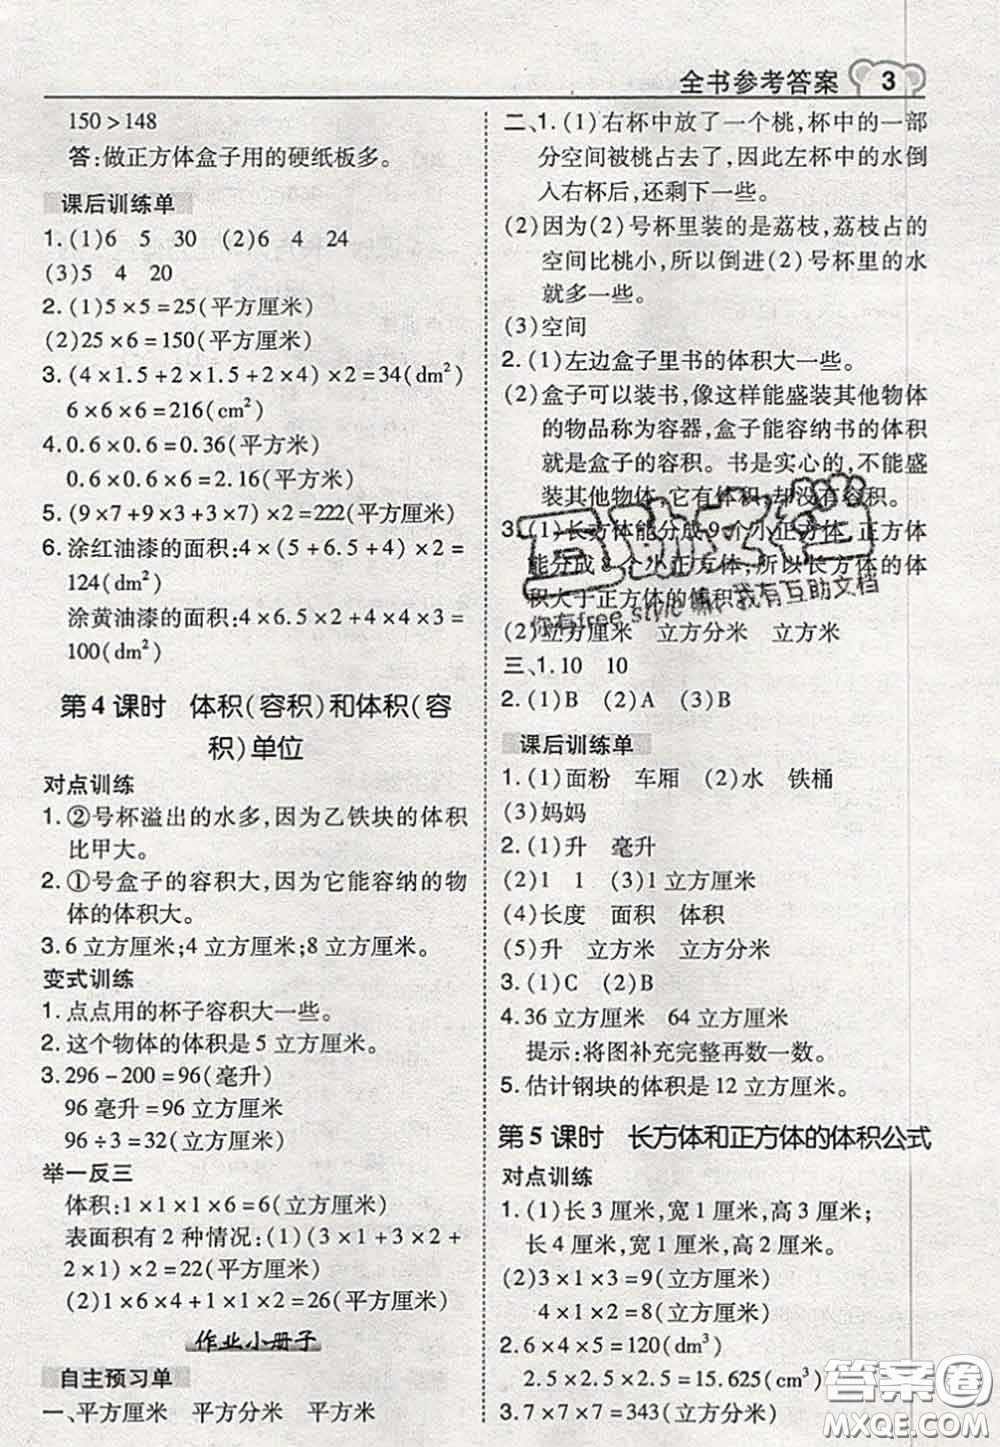 全书参考答案 3
150 > 148
答:做正方体盒子用的硬纸板多。
课后训练单
1. (1)6 5 30 (2)6 4 24
(3)5 4 20
2. (1)5×5=25(平方厘米)
(2)25×6=150(平方厘米)
3. (4×1.5+2×1.5+2×4)×2=34(dm²)
6×6×6=216(cm²)
4. 0.6×0.6=0.36(平方米)
0.6×0.6×6=2.16(平方米)
5. (9×7+9×3+3×7)×2=222(平方厘米)
6. 涂红油漆的面积:4×(5+6.5+4)×2=
124(dm²)
涂黄油漆的面积:4×6.5×2+4×4×3=
100(dm²)
第4课时 体积(容积)和体积(容
积)单位
对点训练
1. ②号杯溢出的水多,因为乙铁块的体积
比甲大。
2. ①号盒子的容积大,因为它能容纳的物
体的体积大。
3. 6立方厘米;4立方厘米;8立方厘米。
变式训练
1. 点点用的杯子容积大一些。
2. 这个物体的体积是5立方厘米。
3. 296-200=96(毫升)
96毫升=96立方厘米
96÷3=32(立方厘米)
举一反三
体积:1×1×1×6=6(立方厘米)
表面积有2种情况:(1)(3×1+3×2+
2×1)×2=22(平方厘米)
(2)1×6×4+1×1×2=26(平方厘米)
作业小册子
自主预习单
一、平方厘米 平方分米 平方米
二、1. (1)右杯中放了一个桃,杯中的一部
分空间被桃占去了,因此左杯中的水倒
入右杯后,还剩下一些。
(2)因为(2)号杯里装的是荔枝,荔枝占的
空间比桃小,所以倒进(2)号杯里的水
就多一些。
(3)空间
2. (1)左边盒子里书的体积大一些。
(2)盒子可以装书,像这样能盛装其他物体
的物品称为容器,盒子能容纳书的体积
就是盒子的容积。书是实心的,不能盛
装其他物体,它有体积,却没有容积。
3. (1)长方体能分成9个小正方体,正方体
能分成8个小正方体,所以长方体的体
积大于正方体的体积。
(2)立方厘米 立方分米 立方米
三、1. 10 10
2. (1)B (2)A (3)B
课后训练单
1. (1)面粉 车厢 (2)水 铁桶
(3)妈妈
2. (1)升 毫升
(2)1 1 (3)1立方厘米
(4)长度 面积 体积
(5)升 立方米 立方分米
3. (1)C (2)B
4. 36立方厘米 64立方厘米
提示:将图补充完整再数一数。
5. 估计钢块的体积是12立方厘米。
第5课时 长方体和正方体的体积公式
对点训练
1. (1)长3厘米,宽1厘米,高3厘米;
长4厘米,宽1厘米,高2厘米。
(2)3×1×3=9(立方厘米)
4×1×2=8(立方厘米)
2. 6×4×5=120(dm³)
2.5×2.5×2.5=15.625(cm³)
3. 7×7×7=343(立方分米)
互助文档
你有free style 嘛,我有互助文档
答案圈
MXQE.COM